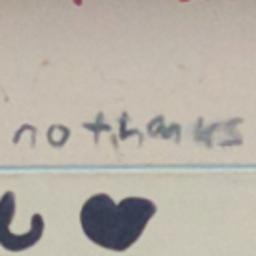 no thanks